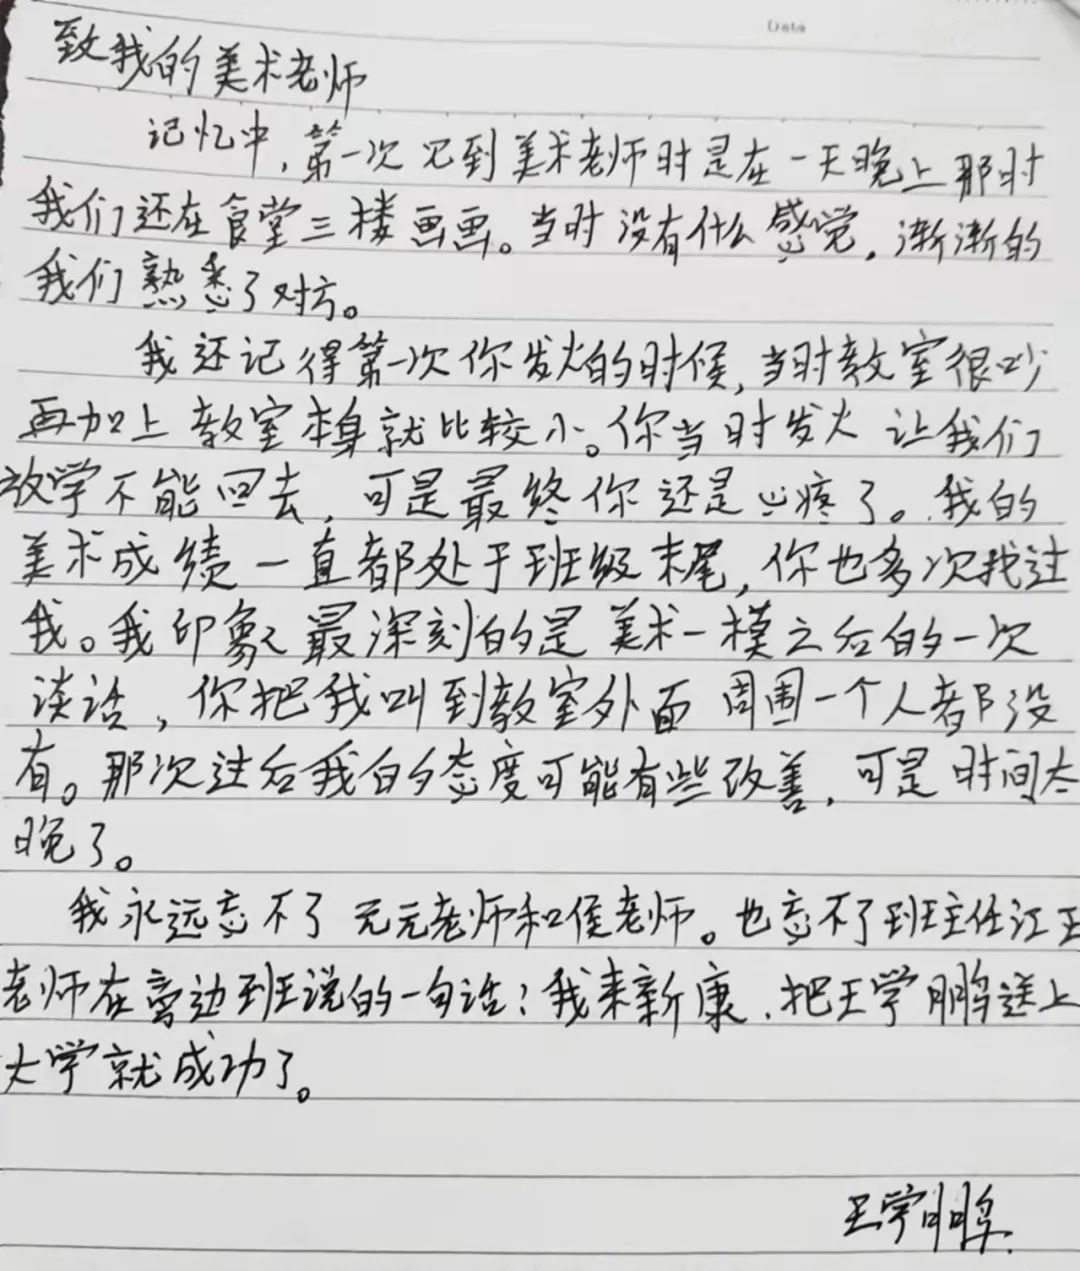 Date
致我的美术老师
记忆中,第一次见到美术老师时是在一天晚上那时
我们还在食堂三楼画画。当时没有什么感觉,渐渐的
我们熟悉了对方。
我还记得第一次你发火的时候,当时教室很吵
再加上教室本身就比较小。你当时发火让我们
放学不能回去,可是最终你还是心疼了。我的
美术成绩一直都处于班级末尾,你也多次找过
我。我印象最深刻的是美术一模之后的一次
谈话,你把我叫到教室外面周围一个人都没
有。那次过后我的态度可能有些改善,可是时间太
晚了。
我永远忘不了元元老师和侯老师。也忘不了班主任江玉
老师在旁边班说的一句话:我来新康,把王学鹏送上
大学就成功了。
王学鹏